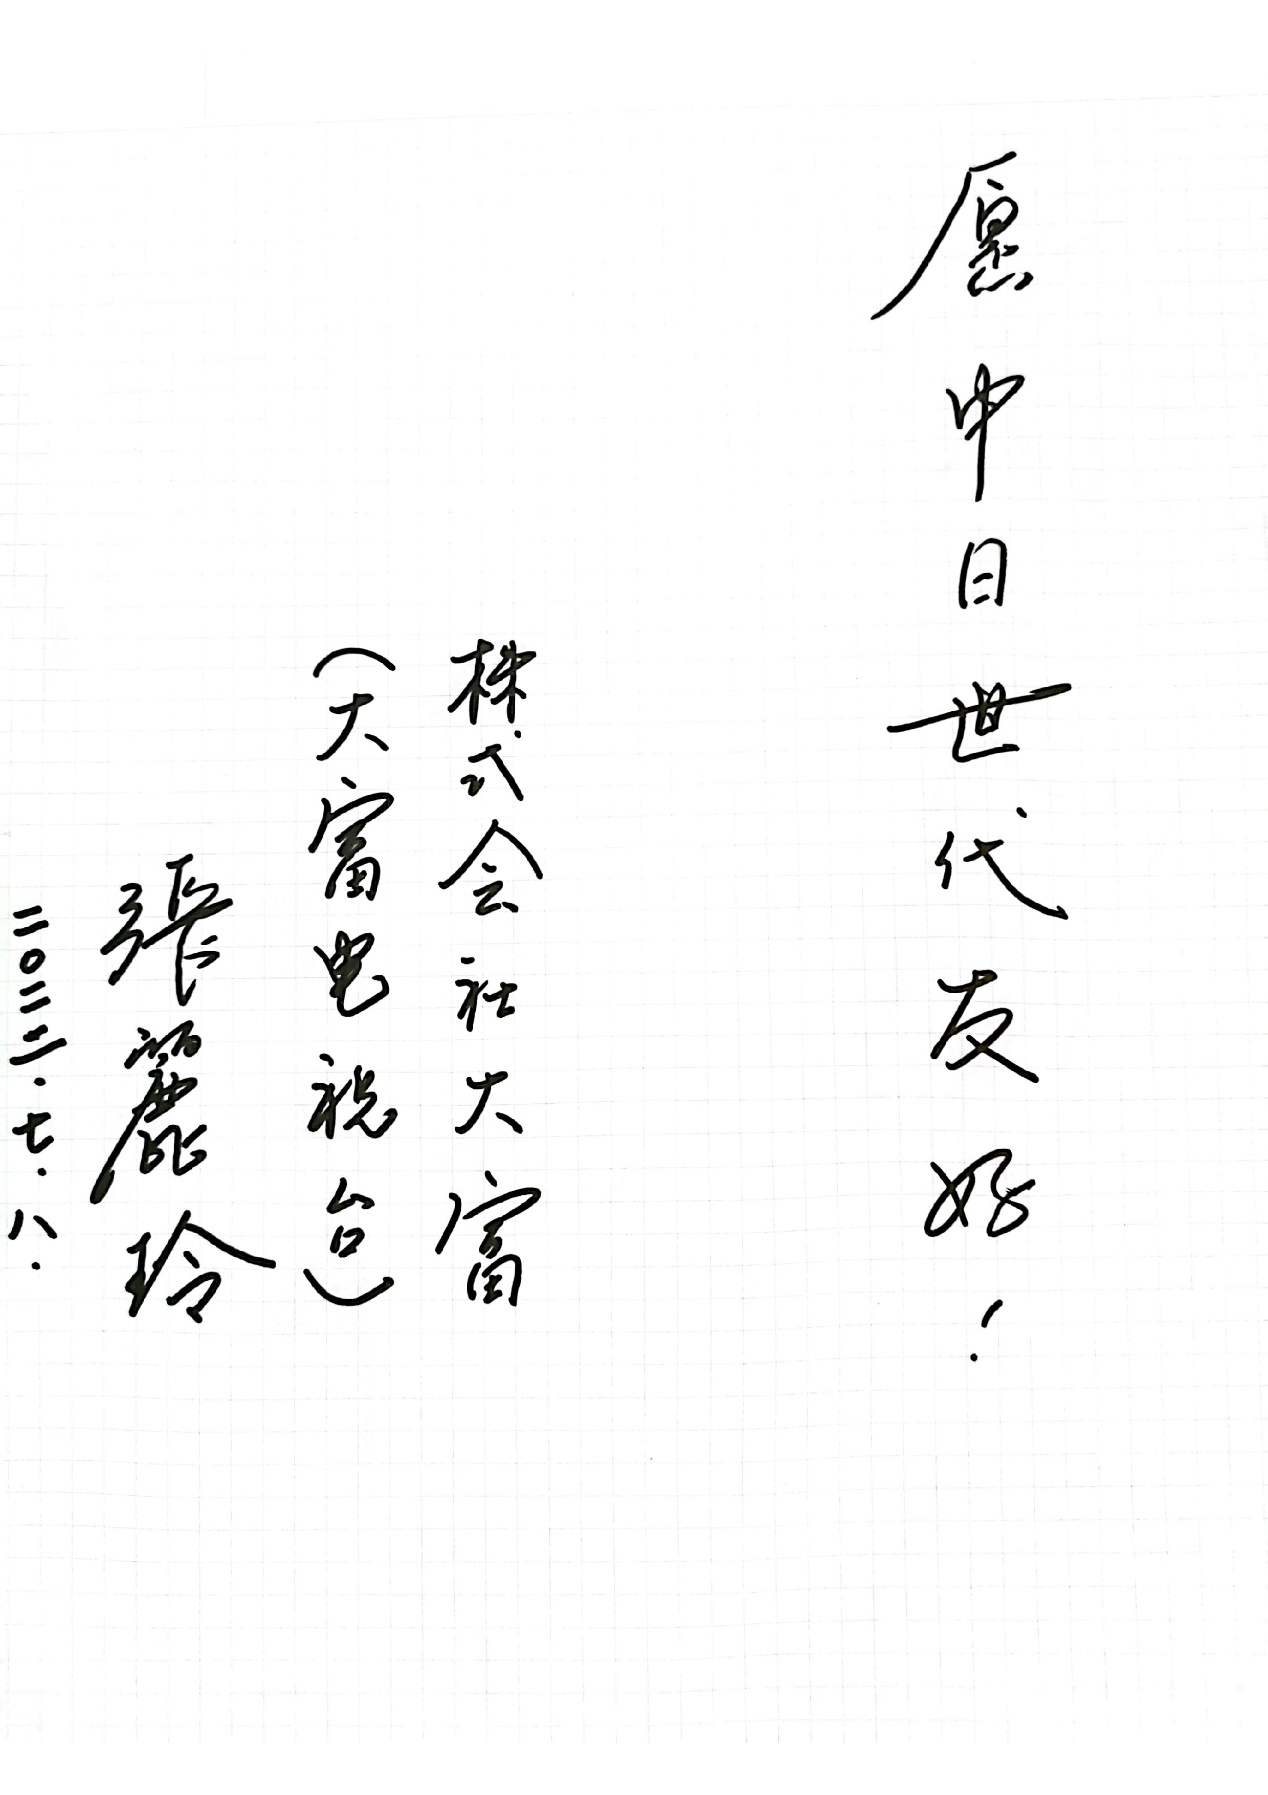 愿中日世代友好！
株式会社大富
（大富电视台）
張麗玲
二〇二二.七.八.